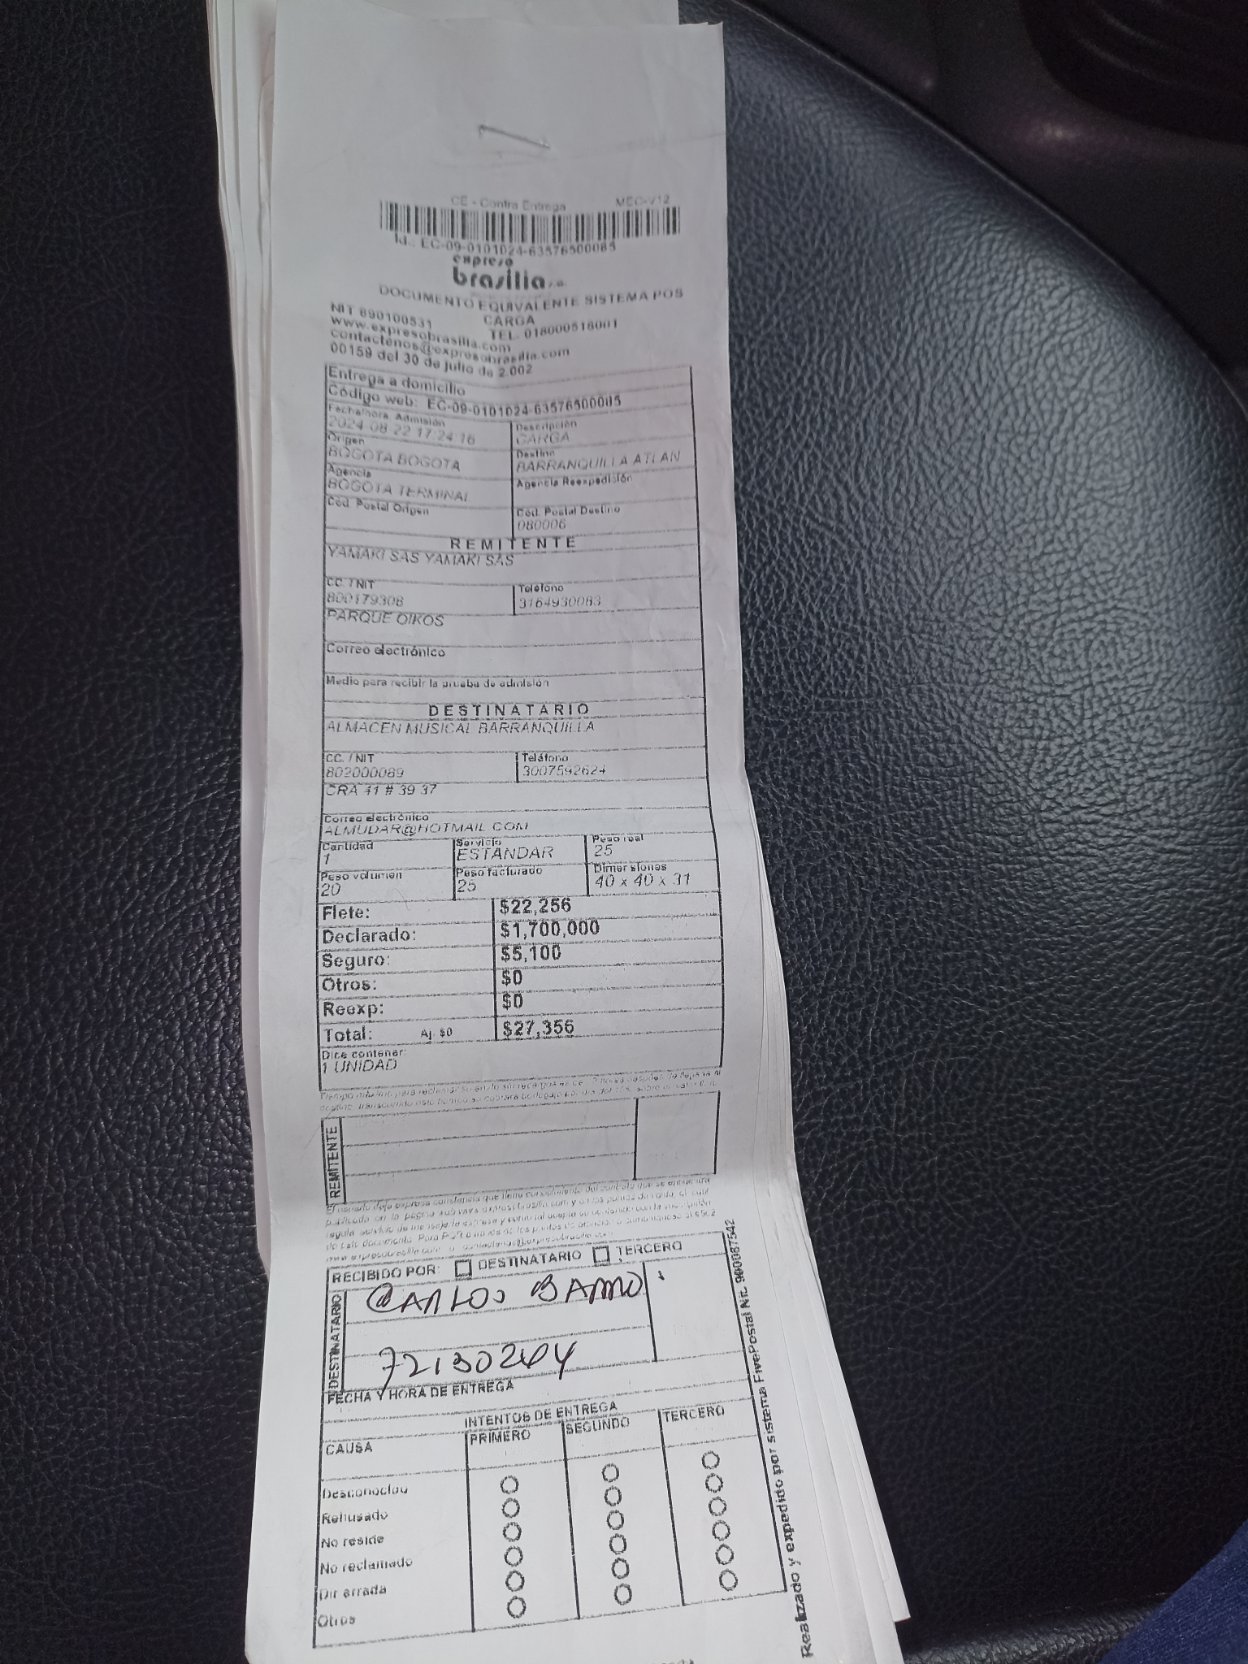 CE - Contra Entrega MEC-V12
Id.: EC-09-0101024-63576500085
expreso
brasilia s.a.
DOCUMENTO EQUIVALENTE SISTEMA POS
CARGA
NIT 890100531 TEL. 018000518001
www.expresobrasilia.com
contactenos@expresobrasilia.com
00159 del 30 de julio de 2.002
Entrega a domicilio
Código web: EC-09-0101024-63576500085
Fecha/hora Admisión Descripción
2024-08-22 17:24:16 CARGA
Origen Destino
BOGOTA BOGOTA BARRANQUILLA ATLAN
Agencia Agencia Reexpedición
BOGOTA TERMINAL
Cod. Postal Origen Cod. Postal Destino
080006
REMITENTE
YAMAKI SAS YAMAKI SAS
CC. / NIT Teléfono
800179308 3164930083
PARQUE OIKOS
Correo electrónico
Medio para recibir la prueba de admisión
DESTINATARIO
ALMACEN MUSICAL BARRANQUILLA
CC. / NIT Teléfono
802000089 3007592624
CRA 41 # 39 37
Correo electrónico
ALMUDAR@HOTMAIL.COM
Cantidad Servicio Peso real
1 ESTANDAR 25
Peso volumen Peso facturado Dimensiones
20 25 40 x 40 x 31
Flete: $22,256
Declarado: $1,700,000
Seguro: $5,100
Otros: $0
Reexp: $0
Total: Aj. $0 $27,356
Dice contener:
1 UNIDAD
REMITENTE
RECIBIDO POR: DESTINATARIO TERCERO
DESTINATARIO
CARLOS BARRO
72130244
FECHA Y HORA DE ENTREGA
INTENTOS DE ENTREGA
CAUSA PRIMERO SEGUNDO TERCERO
Desconocido
Rehusado
No reside
No reclamado
Dir errada
Otros
Realizado y expedido por sistema FivePostal Nit. 900087542